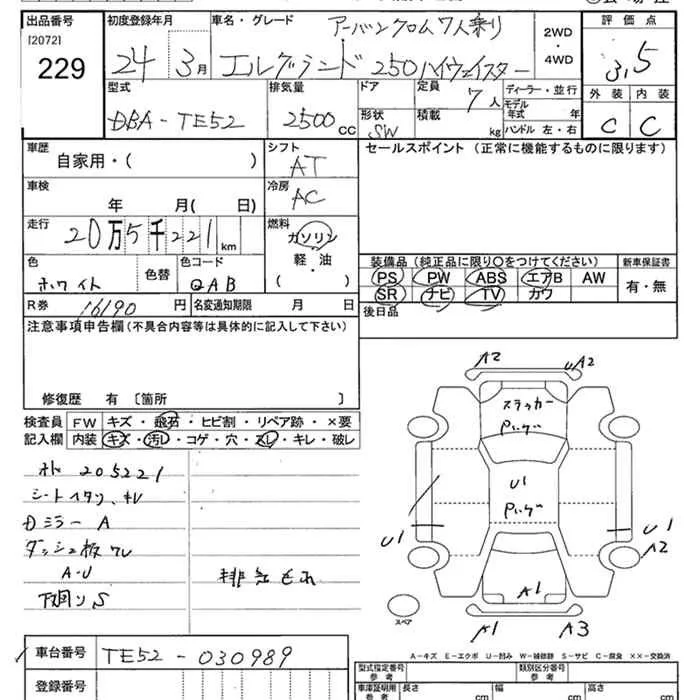 出品番号 初度登録年月 車名・グレード アーバンクロム 7人乗り 2WD・4WD 評価点
[2072] 229 24年 3月 エルグランド 250ハイウェイスター 3.5
型式 排気量 ドア 定員 7人 ディーラー・並行 外装 内装
DBA-TE52 2500cc 形状 SW 積載 kg モデル年式 年 ハンドル 左・右 C C
車歴 シフト セールスポイント (正常に機能するものに限ります)
自家用・( ) AT
車検 年 月( 日) 冷房 AC
走行 20万5千221km 燃料 ガソリン・軽油・( )
色 色替 色コード 装備品 (純正品に限り○をつけてください) 新車保証書
ホワイト QAB PS PW ABS エアB AW 有・無
R券 16190円 名変通知期限 月 日 SR ナビ TV カワ
注意事項申告欄(不具合内容等は具体的に記入して下さい) 後日品
修復歴 有 〔箇所 〕
検査員記入欄 FW キズ・飛石・ヒビ割・リペア跡・×要
内装 キズ・汚レ・コゲ・穴・スレ・キレ・破レ
オド 205221
シートヘタリ、キレ
Dミラー A
ダッシュ板ワレ
A-U 排気もれ
下回り S
A2 UA2
ステッカー
Pいゲ
U1
Pいゲ
U1 U1
A2
A1
A1 A3
スペア
A-キズ E-エクボ U-凹み W-補修跡 S-サビ C-腐食 XX-交換済
車台番号 TE52-030989
登録番号
型式指定番号 参考 類別区分番号 参考
車庫証明用 参考 長さ cm 幅 cm 高さ cm